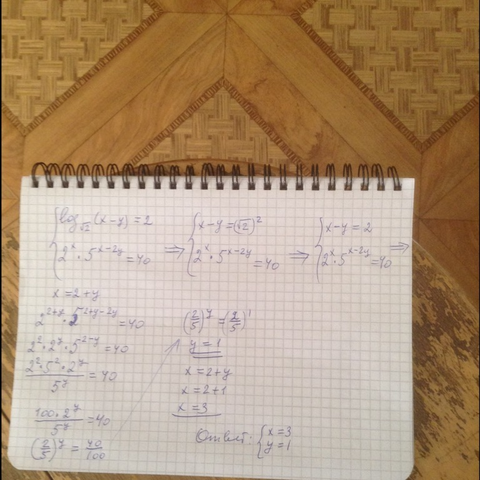 { log_√2 (x-y) = 2 ⇒ { x-y = (√2)² ⇒ { x-y = 2 ⇒
{ 2^x · 5^(x-2y) = 40 { 2^x · 5^(x-2y) = 40 { 2^x · 5^(x-2y) = 40
x = 2+y
2^(2+y) · 5^(2+y-2y) = 40
2² · 2^y · 5^(2-y) = 40
(2² · 5² · 2^y)/5^y = 40
(100 · 2^y)/5^y = 40
(2/5)^y = 40/100
(2/5)^y = (2/5)^1
y = 1
x = 2+y
x = 2+1
x = 3
Ответ: { x=3
{ y=1